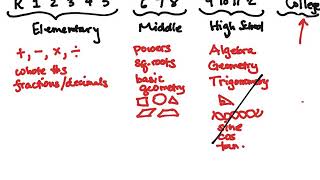 K 1 2 3 4 5
6 7 8
9 10 11 12
College
Elementary
Middle
High School
+, −, ×, ÷
whole #s
fractions/decimals
powers
sq. roots
basic
geometry
Algebra
Geometry
Trigonometry
sine
cos
tan